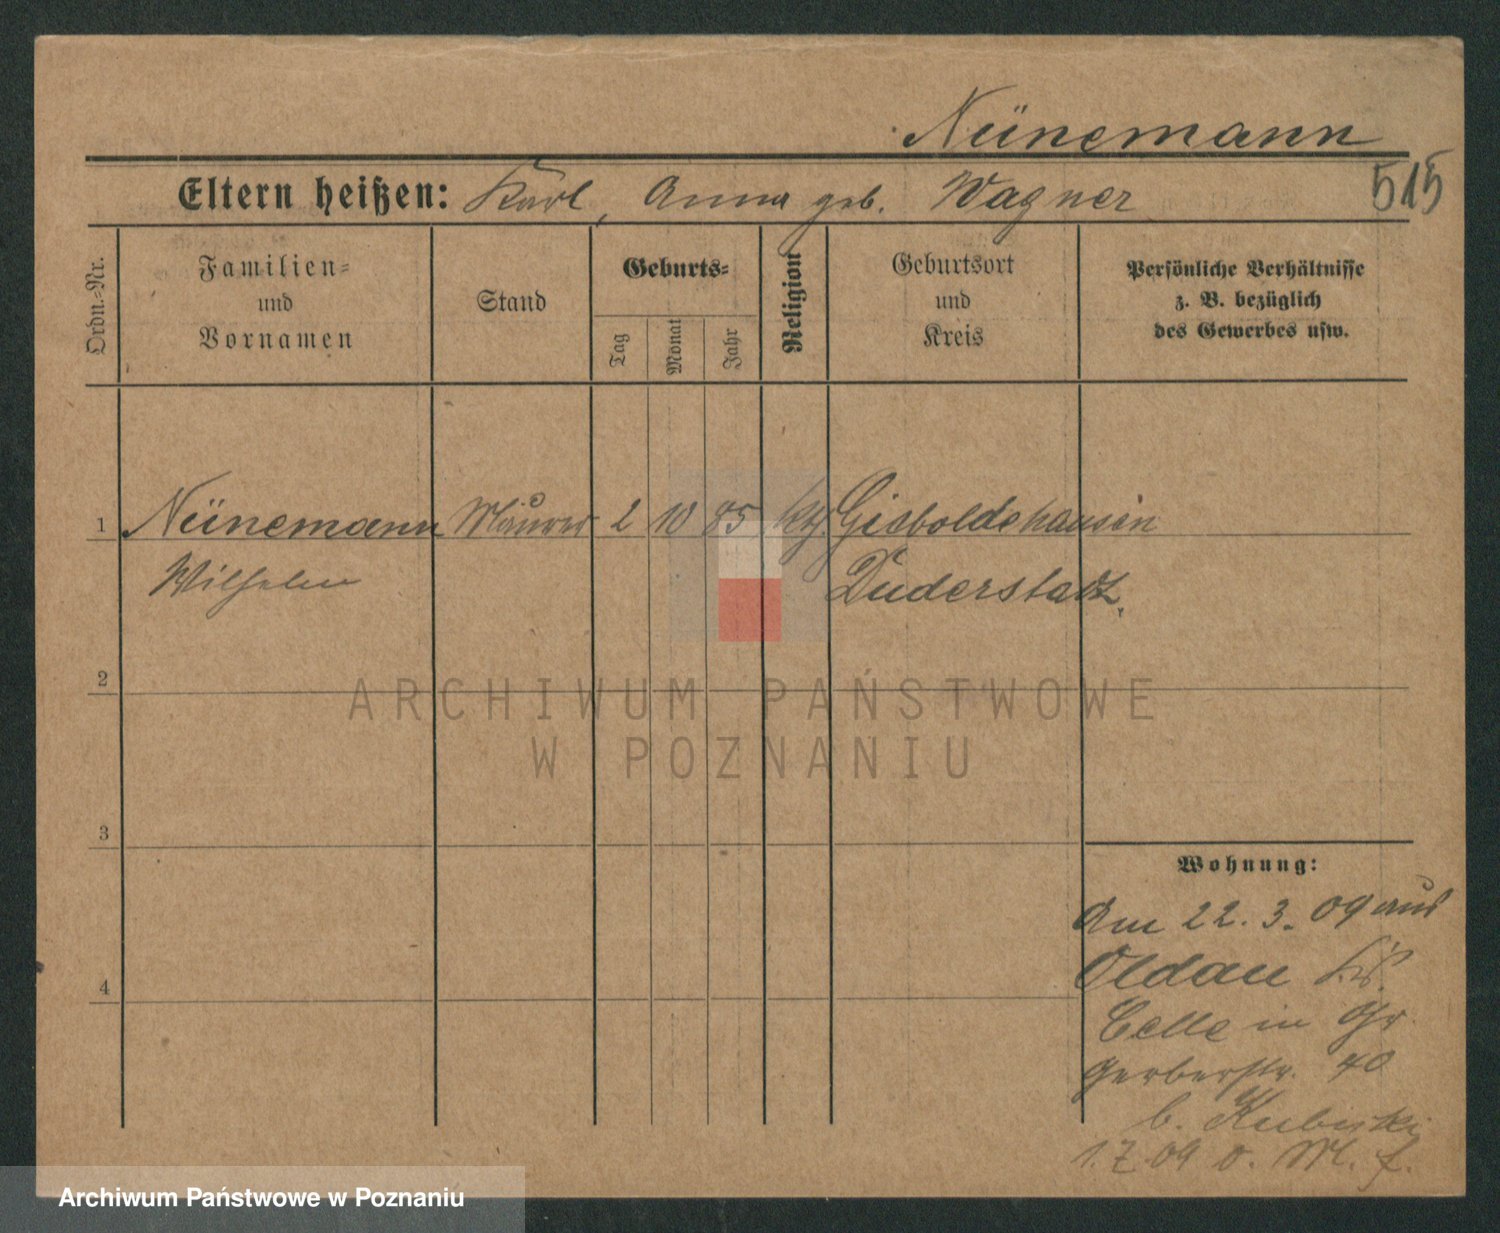 Nünemann
515
Eltern heißen: Karl, Anna geb. Wagner
Ordn.-Nr.
Familien-
und
Vornamen
Stand
Geburts-
Tag
Monat
Jahr
Religion
Geburtsort
und
Kreis
Persönliche Verhältnisse
z. B. bezüglich
des Gewerbes usw.
1 Nünemann Maurer 2 10 85 kth. Gieboldehausen
Wilhelm Duderstadt.
2
ARCHIWUM PAŃSTWOWE
W POZNANIU
3
Wohnung:
Am 22. 3. 09 aus
Oldau Krs.
4
Celle in Gr.
Gerberstr. 40
b. Kubicki
1.7.09 o. M. f.
Archiwum Państwowe w Poznaniu